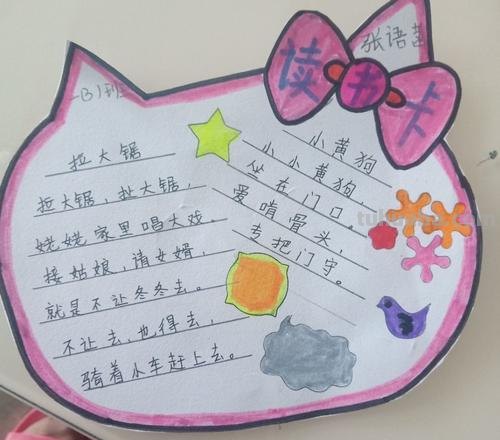 读书卡
张语
31班
拉大锯
拉大锯，扯大锯，
姥姥家里唱大戏。
接姑娘，请女婿，
就是不让冬冬去。
不让去，也得去，
骑着小车赶上去。
小黄狗
小小黄狗，
坐在门口。
爱啃骨头，
专把门守。